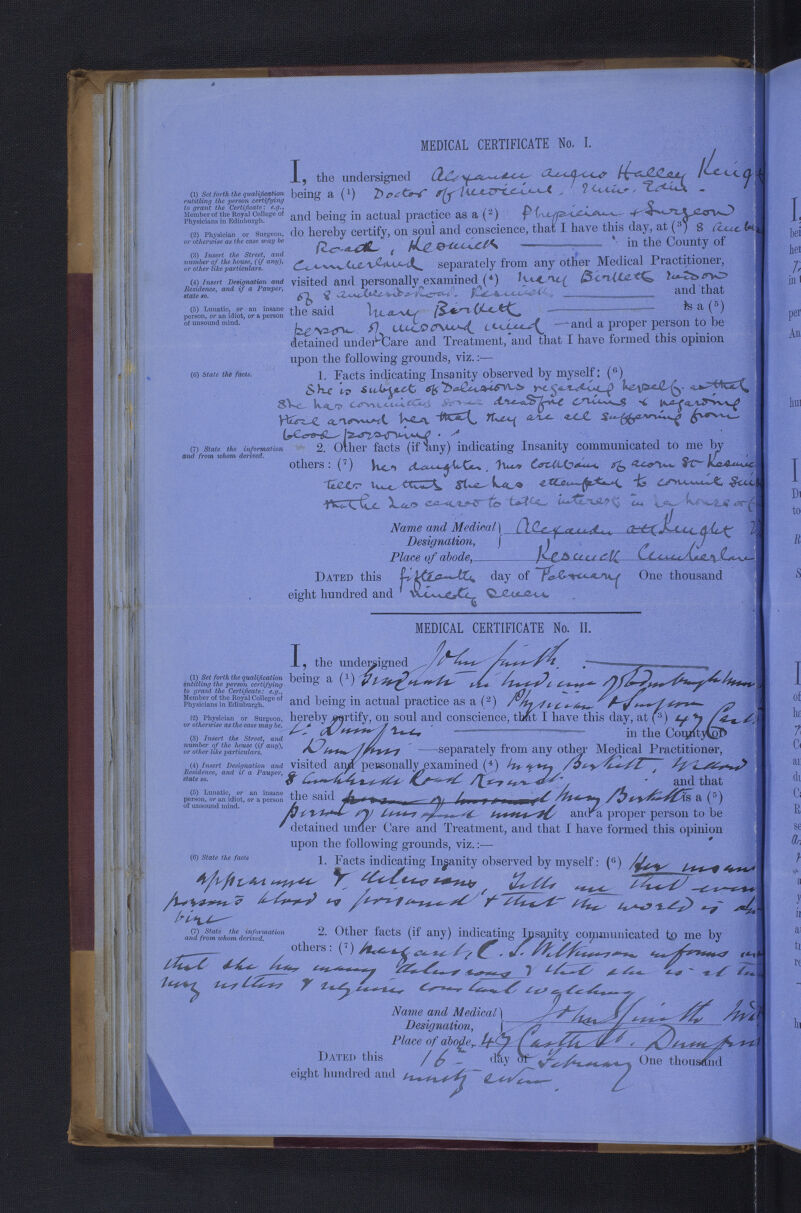 MEDICAL CERTIFICATE No. I.
I, the undersigned Alexander Angus Halley Knight
(1) Set forth the qualification entitling the person certifying to grant the Certificate: e.g., Member of the Royal College of Physicians in Edinburgh.
being a (1) Doctor of Medicine, Univ. Edin.
and being in actual practice as a (2) Physician & Surgeon
(2) Physician or Surgeon, or otherwise as the case may be
do hereby certify, on soul and conscience, that I have this day, at (3) 8
Road, Keswick in the County of
(3) Insert the Street, and number of the house, (if any), or other like particulars.
Cumberland separately from any other Medical Practitioner,
(4) Insert Designation and Residence, and if a Pauper, state so.
visited and personally examined (4) Mary Birkett Widow
of 8 Ambleside Road, Keswick and that
(5) Lunatic, or an insane person, or an idiot, or a person of unsound mind.
the said Mary Birkett is a (5)
person of unsound mind and a proper person to be
detained under Care and Treatment, and that I have formed this opinion
upon the following grounds, viz.:—
(6) State the facts.
1. Facts indicating Insanity observed by myself: (6)
She is subject of Delusions regarding herself as that
She has committed some dreadful crimes & regarding
those around her that they are all suffering from
blood poisoning.
(7) State the information and from whom derived.
2. Other facts (if any) indicating Insanity communicated to me by
others: (7) her daughter, Mrs Cockbain of Acorn St Keswick
tells me that she has attempted to commit
that she has ceased to take interest in her house
Name and Medical Designation, Alexander AH Knight
Place of abode, Keswick Cumberland
DATED this fifteenth day of February One thousand
eight hundred and ninety seven
MEDICAL CERTIFICATE No. II.
I, the undersigned John Smith.
(1) Set forth the qualification entitling the person certifying to grant the Certificate: e.g., Member of the Royal College of Physicians in Edinburgh.
being a (1) Graduate in Medicine of Edinburgh
and being in actual practice as a (2) Physician & Surgeon
(2) Physician or Surgeon, or otherwise as the case may be.
hereby certify, on soul and conscience, that I have this day, at (3) 47 Castle
St. Dumfries in the County of
(3) Insert the Street, and number of the house (if any), or other like particulars.
Dumfries separately from any other Medical Practitioner,
(4) Insert Designation and Residence, and if a Pauper, state so.
visited and personally examined (4) Mary Birkett, Widow
8 Ambleside Road Keswick and that
(5) Lunatic, or an insane person, or an idiot, or a person of unsound mind.
the said person of unsound Mary Birkett is a (5)
person of unsound mind and a proper person to be
detained under Care and Treatment, and that I have formed this opinion
upon the following grounds, viz.:—
(6) State the facts
1. Facts indicating Insanity observed by myself: (6) Her insane
appearance & delusions, Tells me that every
person's blood is poisoned & that the world is
(7) State the information and from whom derived.
2. Other facts (if any) indicating Insanity communicated to me by
others: (7) Margaret C. S. Wilkinson informs me
that she has many delusions & that she is at times
very restless & requires constant watching
Name and Medical Designation, John Smith
Place of abode, 47 Castle St. Dumfries
DATED this 16th day of February One thousand
eight hundred and ninety seven